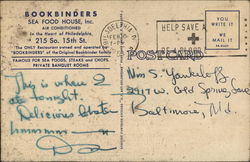 BOOKBINDERS
SEA FOOD HOUSE, Inc.
AIR CONDITIONED
In the Heart of Philadelphia
215 So. 15th St.
The ONLY Restaurant owned and operated by
"BOOKBINDERS" of the Original Bookbinder family
FAMOUS FOR SEA FOODS, STEAKS and CHOPS.
PRIVATE BANQUET ROOMS
This is where I
ate tonight.
Delicious lobster
hmmmmm
PHILADELPHIA
HELP SAVE
YOU
WRITE IT
WE
MAIL IT
POSTCARD
Baltimore, Md.